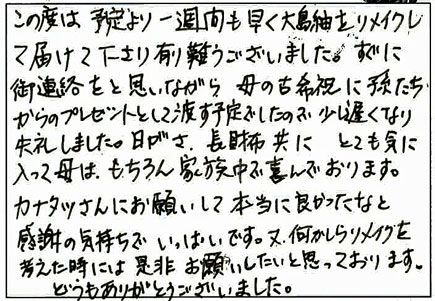 この度は 予定より一週間も早く大島紬をリメイクし
て届けて下さり有り難うございました。すぐに
御連絡をと思いながら 母の古希祝に孫たち
からのプレゼントとして渡す予定でしたので 少し遅くなり
失礼しました。日がさ、長財布 共に とても気に
入って母は、もちろん 家族中で喜んでおります。
カナタツさんにお願いして 本当に良かったなと
感謝の気持ちで いっぱいです。又、何かしらリメイクを
考えた時には 是非 お願いしたいと思っております。
どうもありがとうございました。